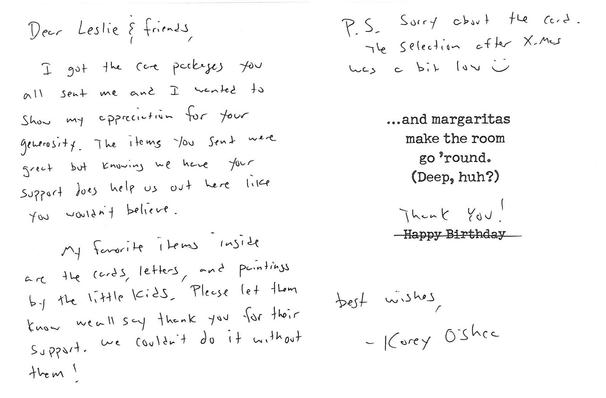 Dear Leslie & friends,
I got the care packages you
all sent me and I wanted to
show my appreciation for your
generosity. The items you sent were
great but knowing we have your
support does help us out here like
you wouldn't believe.
My favorite items inside
are the cards, letters, and paintings
by the little kids. Please let them
know we all say thank you for their
support. We couldn't do it without
them!
P.S. Sorry about the card.
The selection after X-Mas
was a bit low
...and margaritas
make the room
go 'round.
(Deep, huh?)
Thank You!
Happy Birthday
best wishes,
- Korey O'Shea